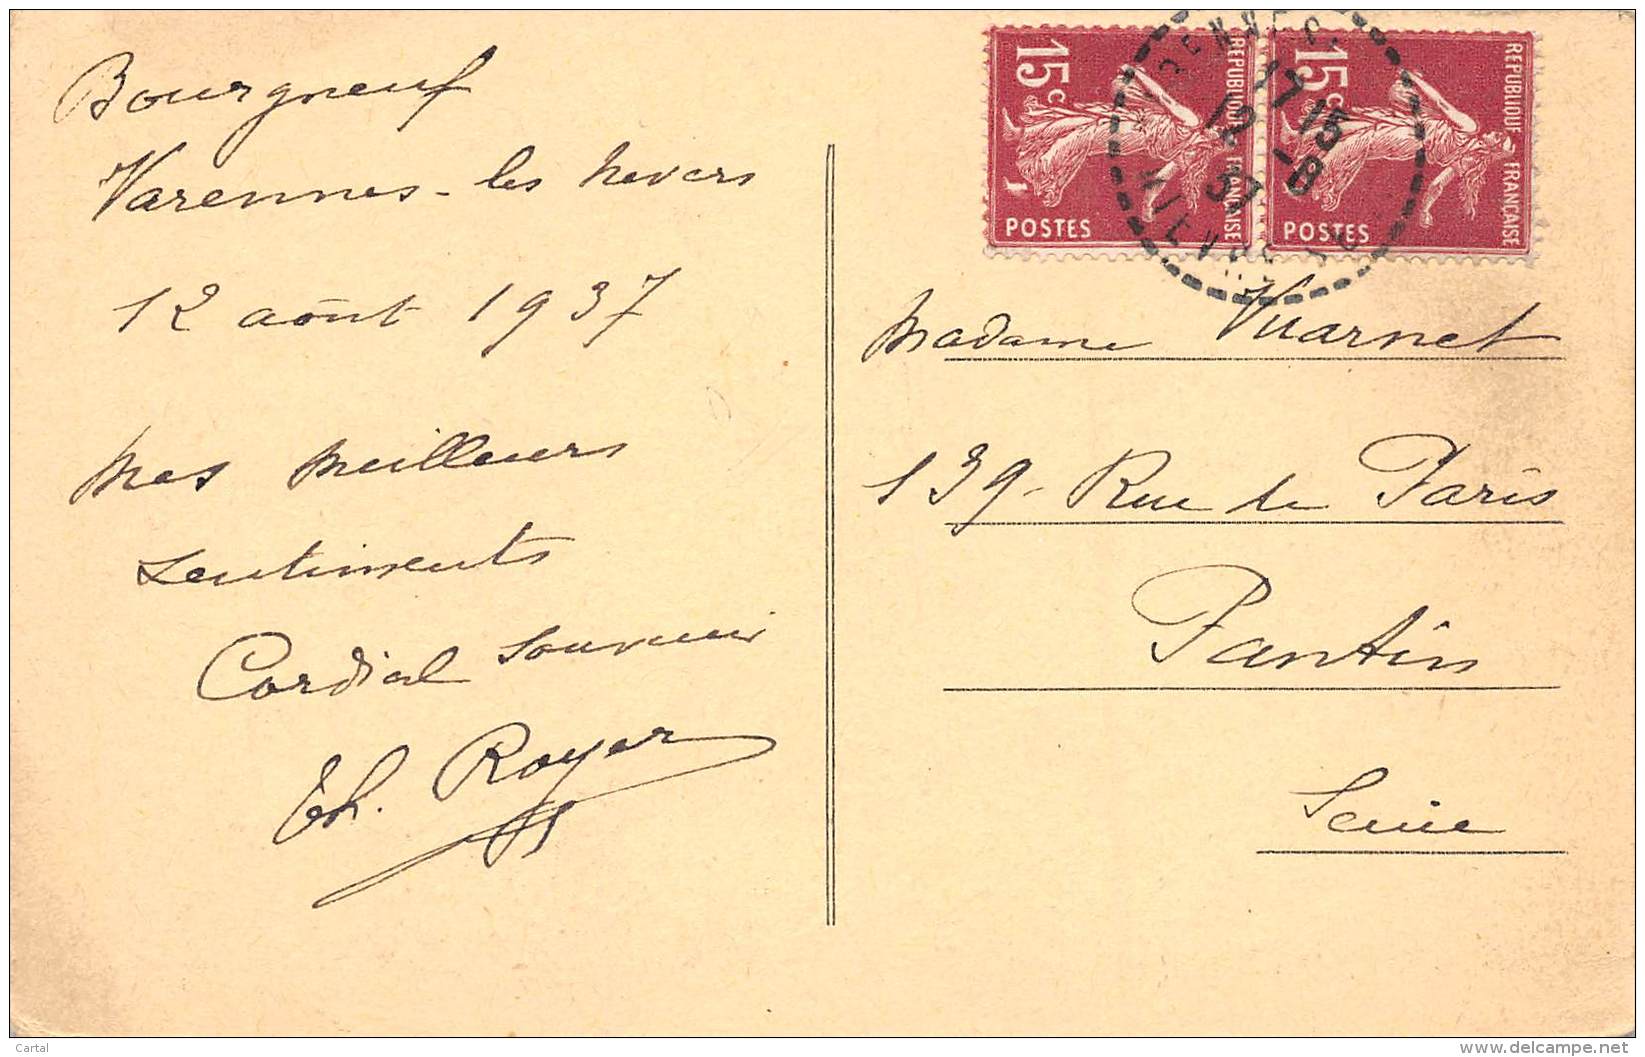 Bourgneuf
Varennes-les Nevers
12 août 1937
Mes meilleurs
sentiments
Cordial souvenir
Ch. Royer
15c
POSTES
REPUBLIQUE FRANÇAISE
15c
POSTES
REPUBLIQUE FRANÇAISE
17 15
12 -8
37
NIEVRE
Madame Vuarnet
139 - Rue de Paris
Pantin
Seine
Cartal
www.delcampe.net